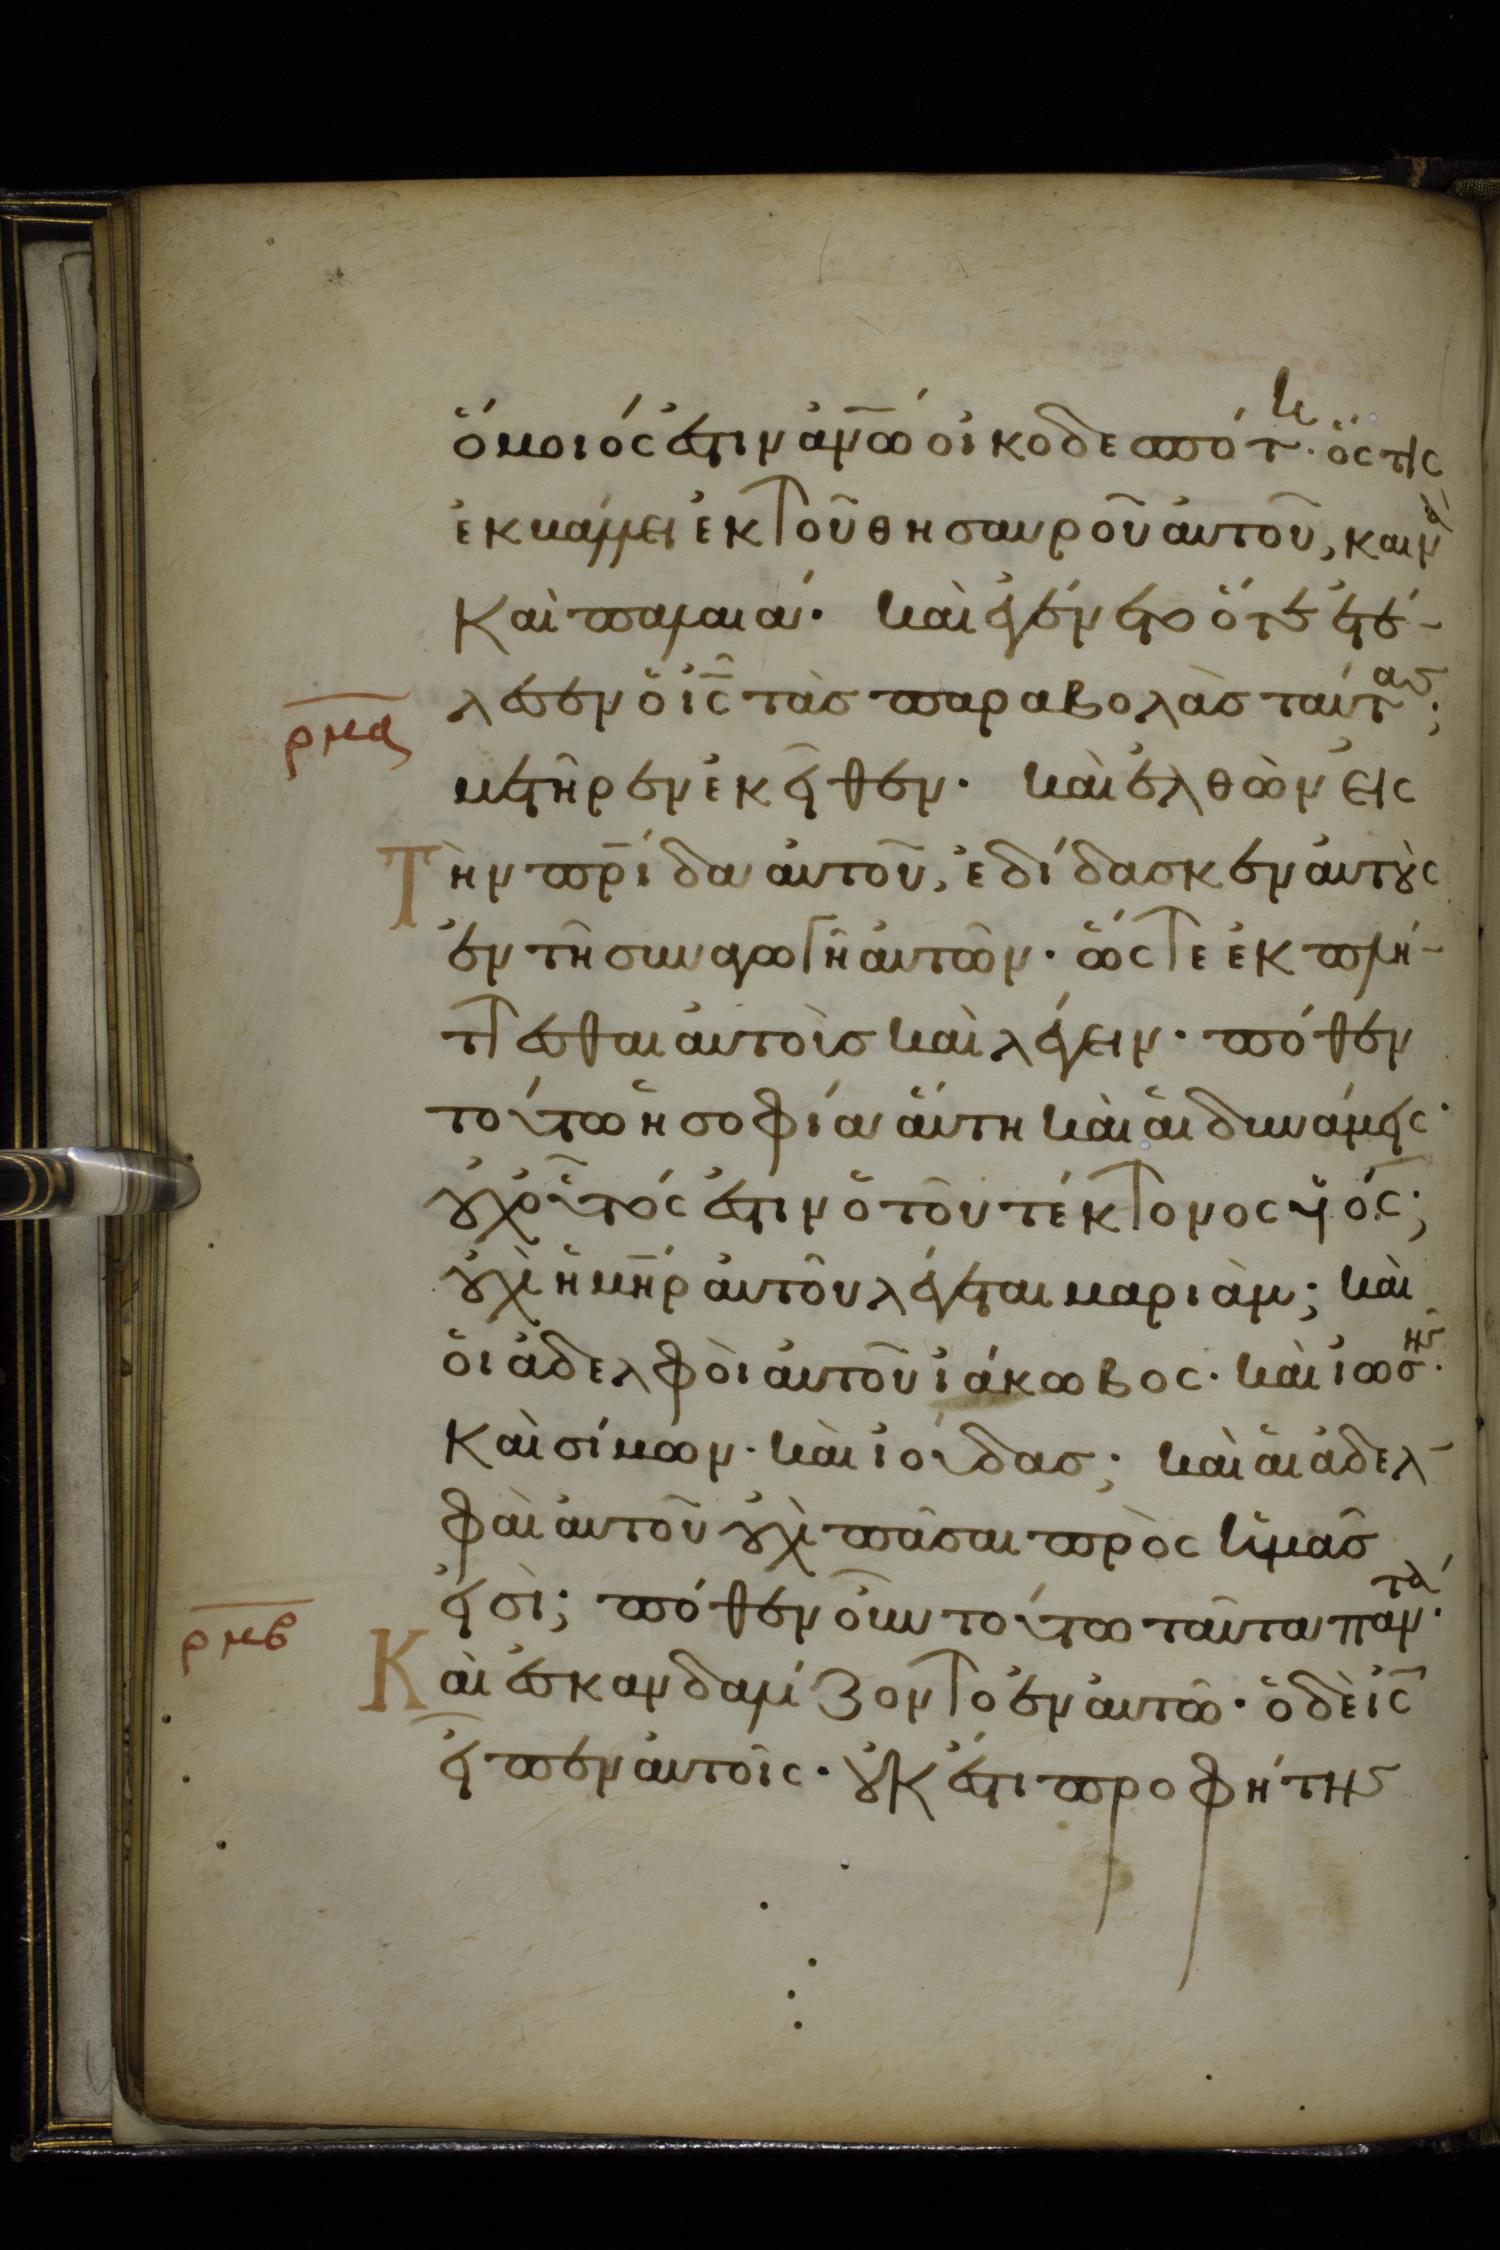 ὅμοιός ἐστιν ἀν̅ω οἰκοδεσπότη· ὅστις
ἐκβάλλει ἐκ τοῦ θησαυροῦ αὐτοῦ, καινὰ
καὶ παλαιά· καὶ ἐγένετο ὅτε ἐτέ-
λεσεν ὁ ι̅ς̅ τὰς παραβολὰς ταύτας;
ρμα
μετῆρεν ἐκεῖθεν· καὶ ἐλθὼν εἰς
Τὴν πρ̅ίδα αὐτοῦ, ἐδίδασκεν αὐτοὺς
ἐν τῆ συναγωγῆ αὐτῶν· ὥστε ἐκπλή-
τεσθαι αὐτοὺς καὶ λέγειν· πόθεν
τούτω ἡ σοφία αὕτη καὶ αἱ δυνάμεις·
οὐχ οὗτός ἐστιν ὁ τοῦ τέκτονος υἱός;
οὐχὶ ἡ μη̅ρ αὐτοῦ λέγεται μαριὰμ; καὶ
οἱ ἀδελφοὶ αὐτοῦ ἰάκωβος· καὶ ἰωσῆς·
καὶ σίμων· καὶ ἰούδας; καὶ αἱ ἀδελ-
φαὶ αὐτοῦ οὐχὶ πᾶσαι πρὸς ἡμᾶς
εἰσὶ; πόθεν οὖν τούτω ταῦτα πάντα·
ρμβ
Καὶ ἐσκανδαλίζοντο ἐν αὐτῶ· ὁ δὲ ι̅ς̅
εἶπεν αὐτοῖς· οὐκ ἔστι προφήτης